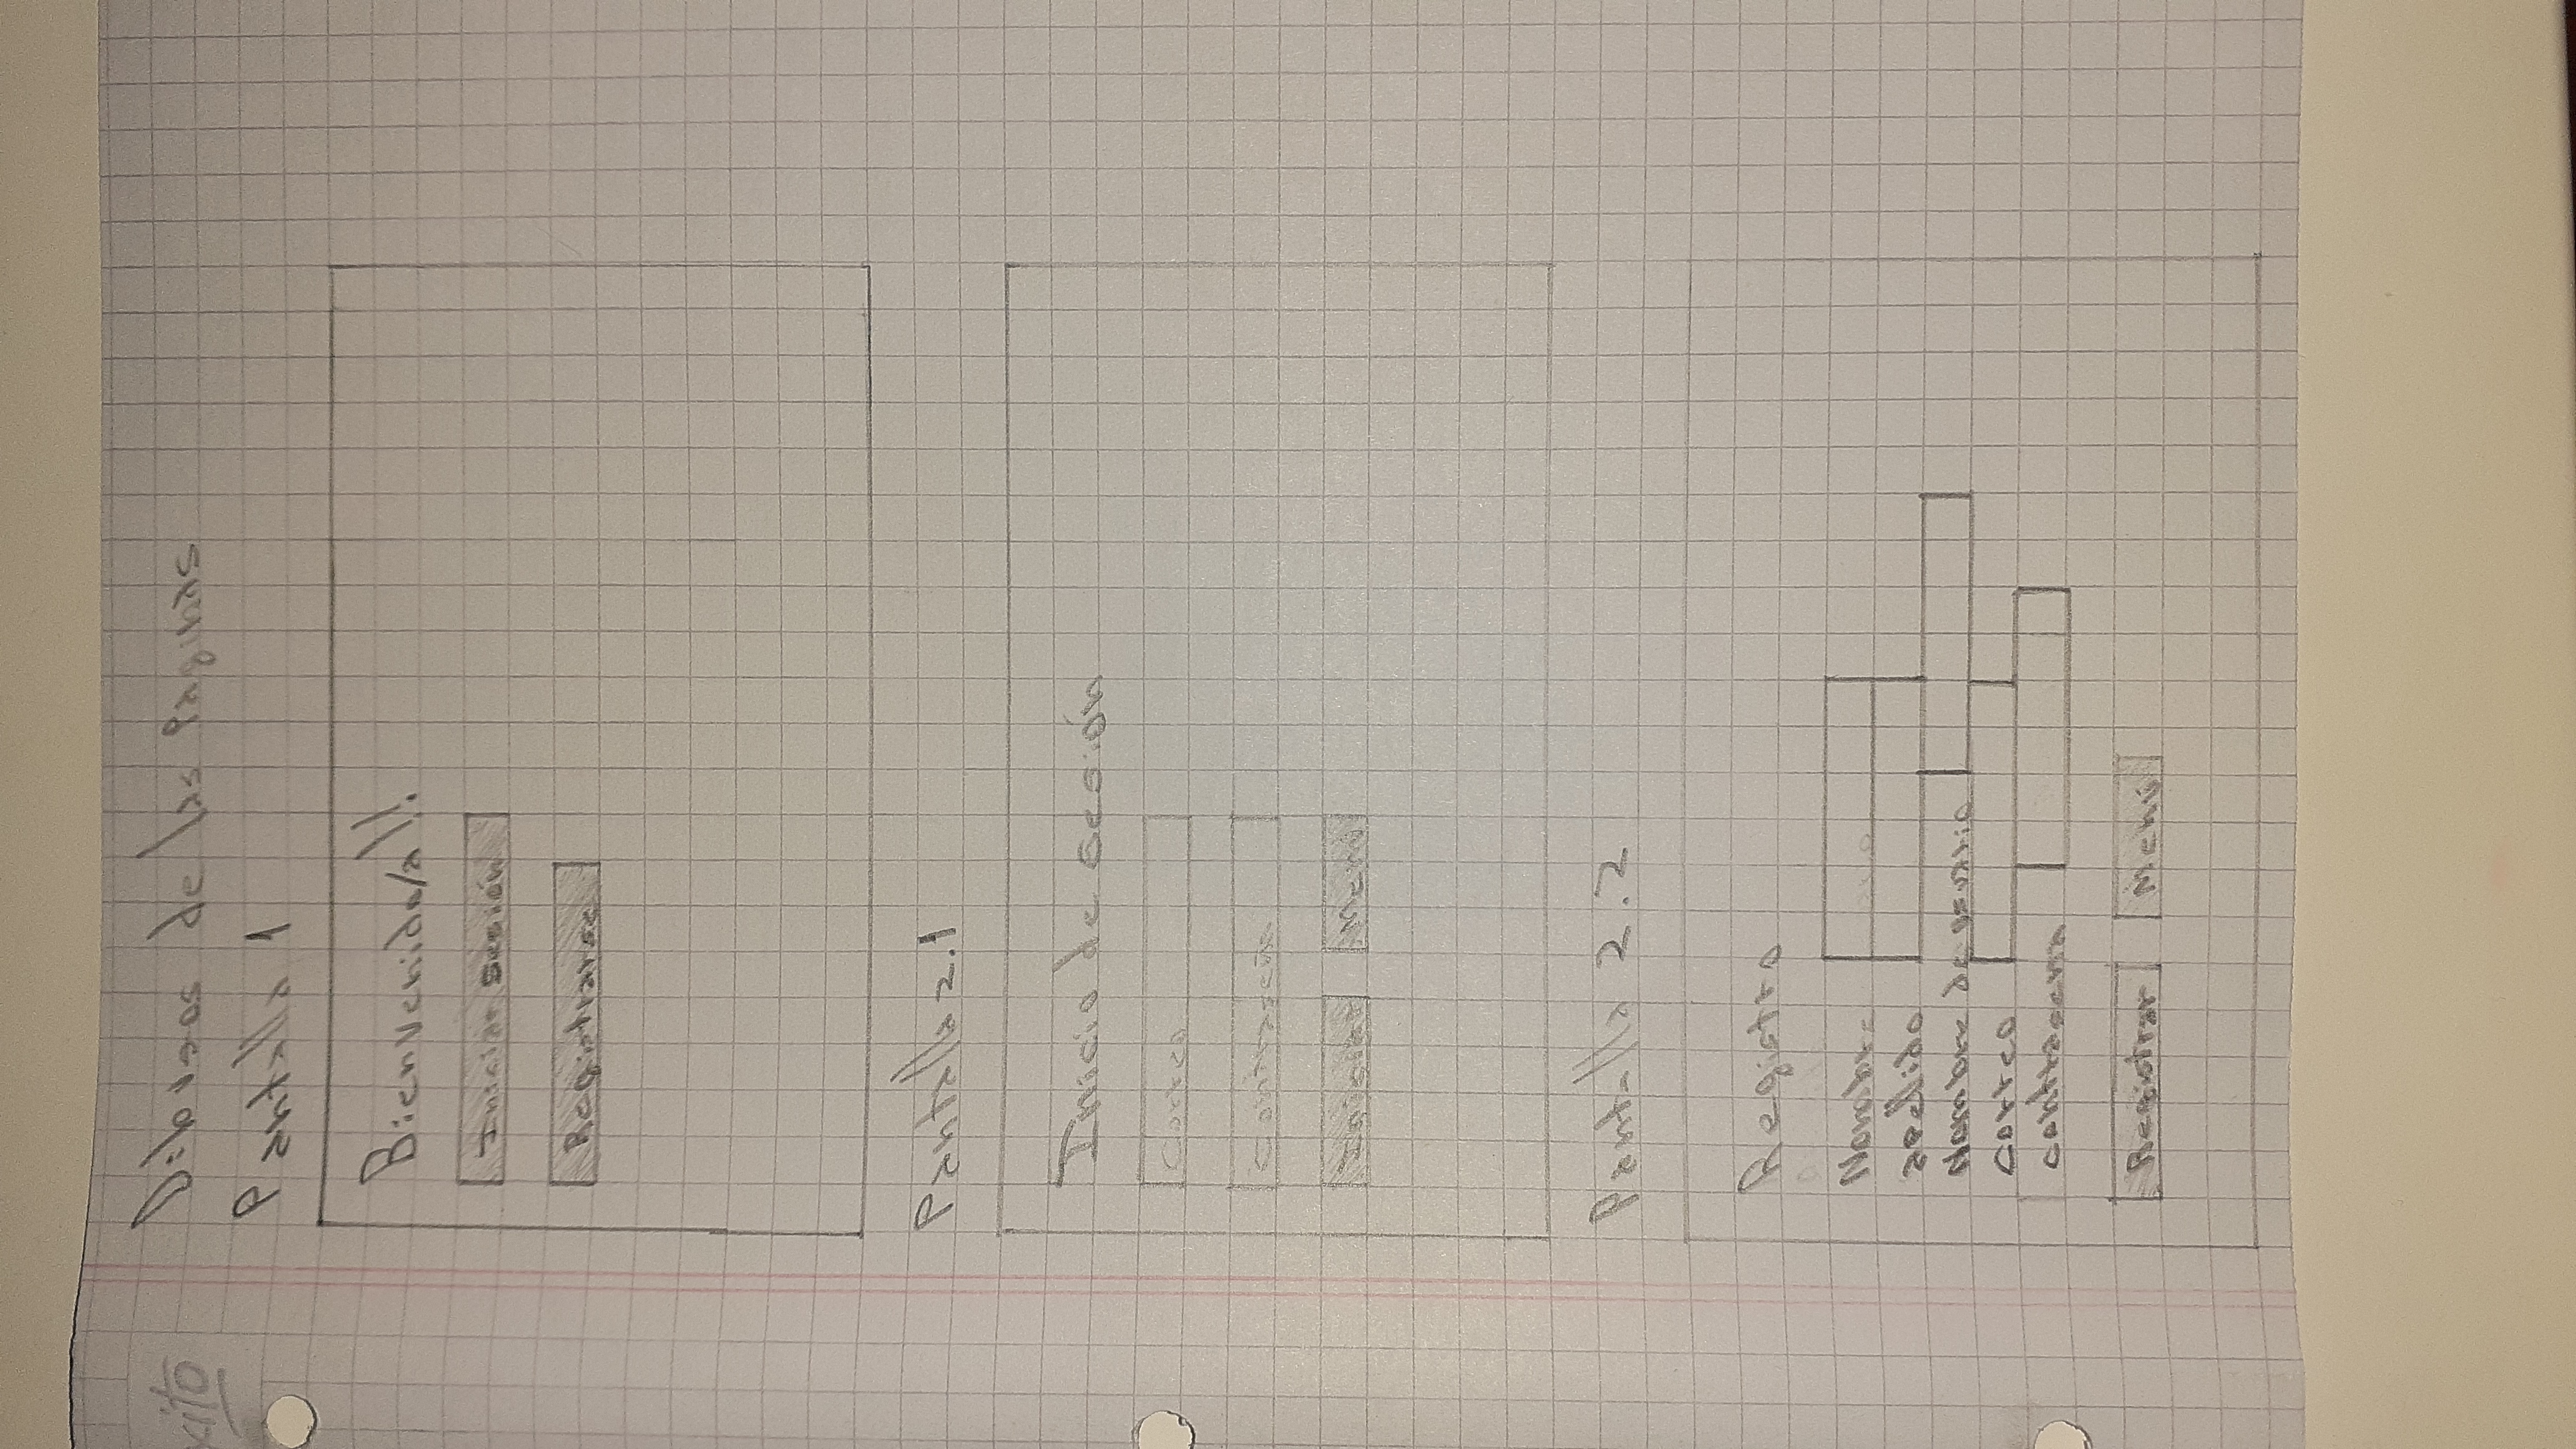 xito
Dibujos de las Páginas
Pantalla 1
Bienvenido/a!!
Iniciar sesión
Registrarse
Pantalla 2.1
Inicio de sesión
Correo
Contraseña
Iniciar Menú
Pantalla 2.2
Registro
Nombre
apellido
Nombre de usuario
correo
contraseña
Registrar Menú